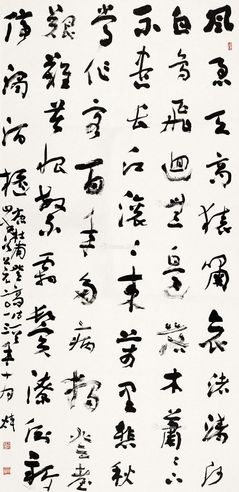 風急天高猿嘯哀渚清沙
白鳥飛迴無邊落木蕭〻下
不盡長江滾〻來萬里悲秋
常作客百年多病獨登臺
艱難苦恨繁霜鬢潦倒新
停濁酒桮
杜甫登高
年十月